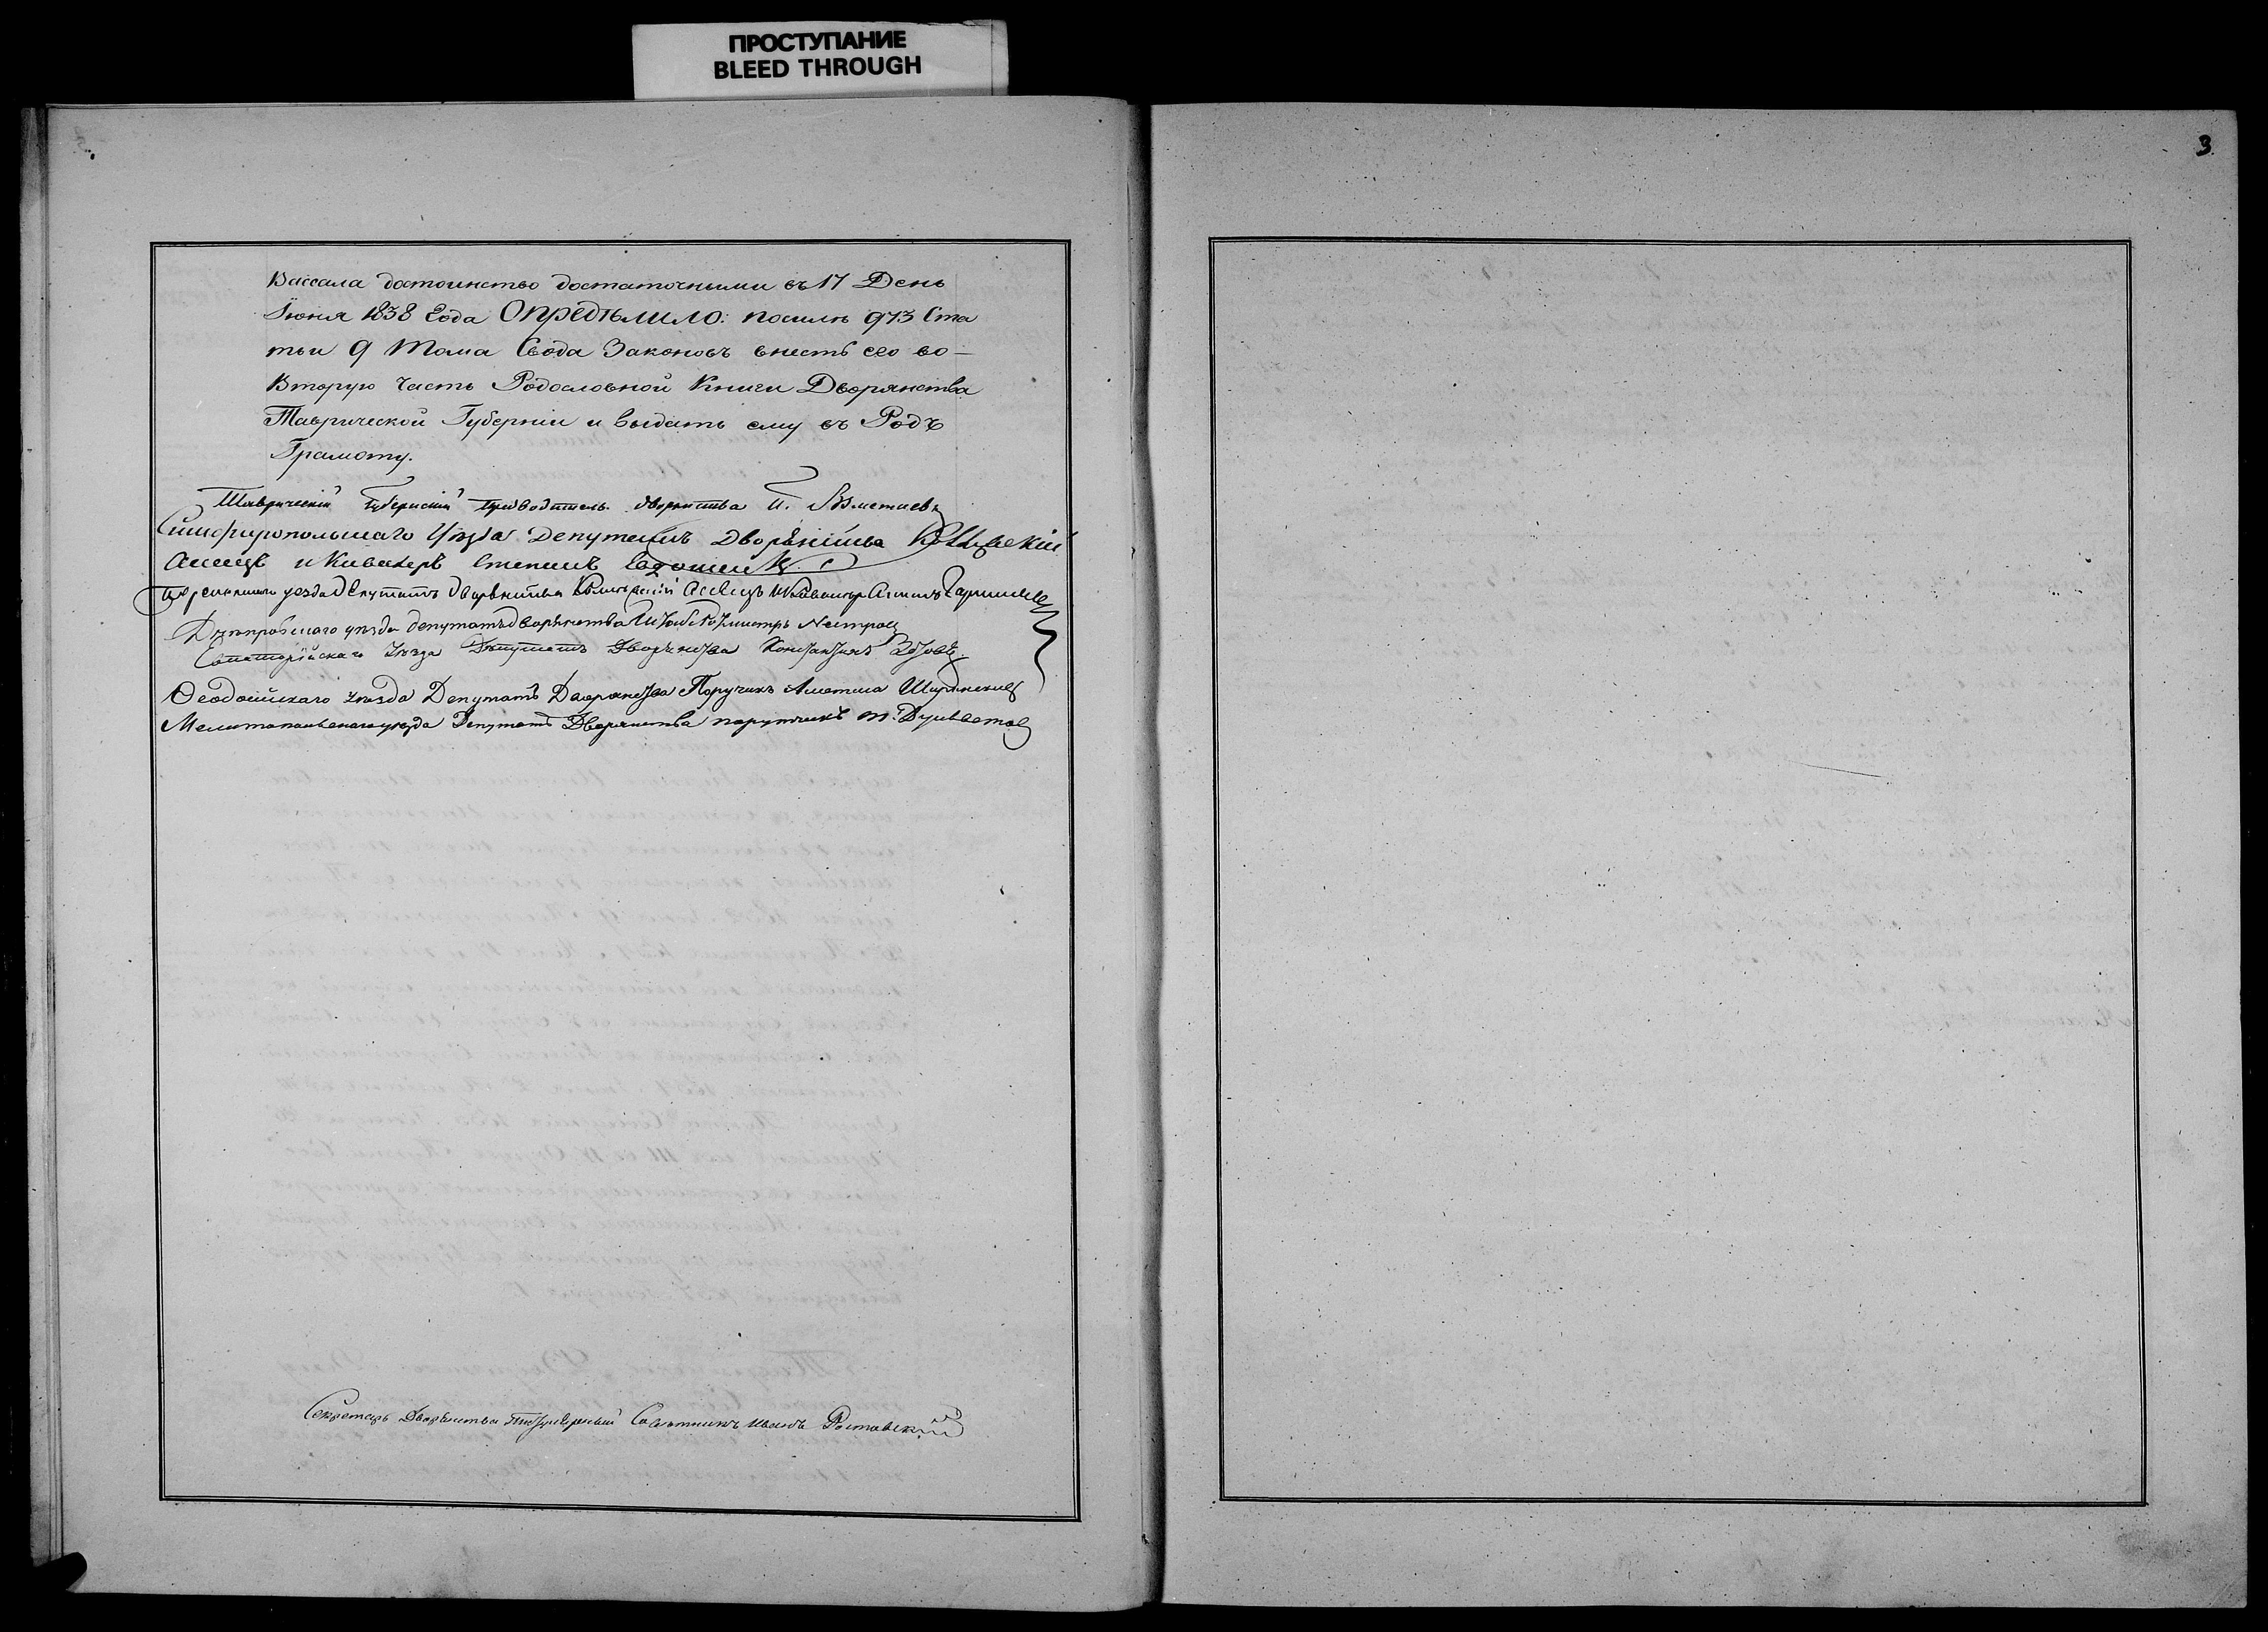 ПРОСТУПАНИЕ
BLEED THROUGH
3.
Вассала достоинство достаточными въ 17 День
Іюня 1838 Года Опредѣлило: по силѣ 973 Ста
тьи 9 Тома Свода Законовъ внесть его во—
Вторую Часть Родословной Книги Дворянства
Таврической Губерніи и выдать ему въ Родъ
Грамоту.
Таврическій Губернскій Предводитель дворянства
Симферопольскаго Уѣзда Депутатъ Дворянства Коллежскій
Асесоръ и Кавалеръ Степанъ
уезда Депутатъ Дворянства и Кавалеръ
Днѣпровскаго уѣзда депутатъ дворянства Штабъ Ротмистръ
Евпаторійскаго Уѣзда Депутатъ Дворянства Константинъ
Ѳеодосійскаго уѣзда Депутатъ Дворянства Поручикъ Аметша Ширинский
Мелитопольскаго уезда Депутатъ Дворянства порутчикъ
Секретарь Дворянства Титулярный Совѣтникъ Иванъ Ростовский